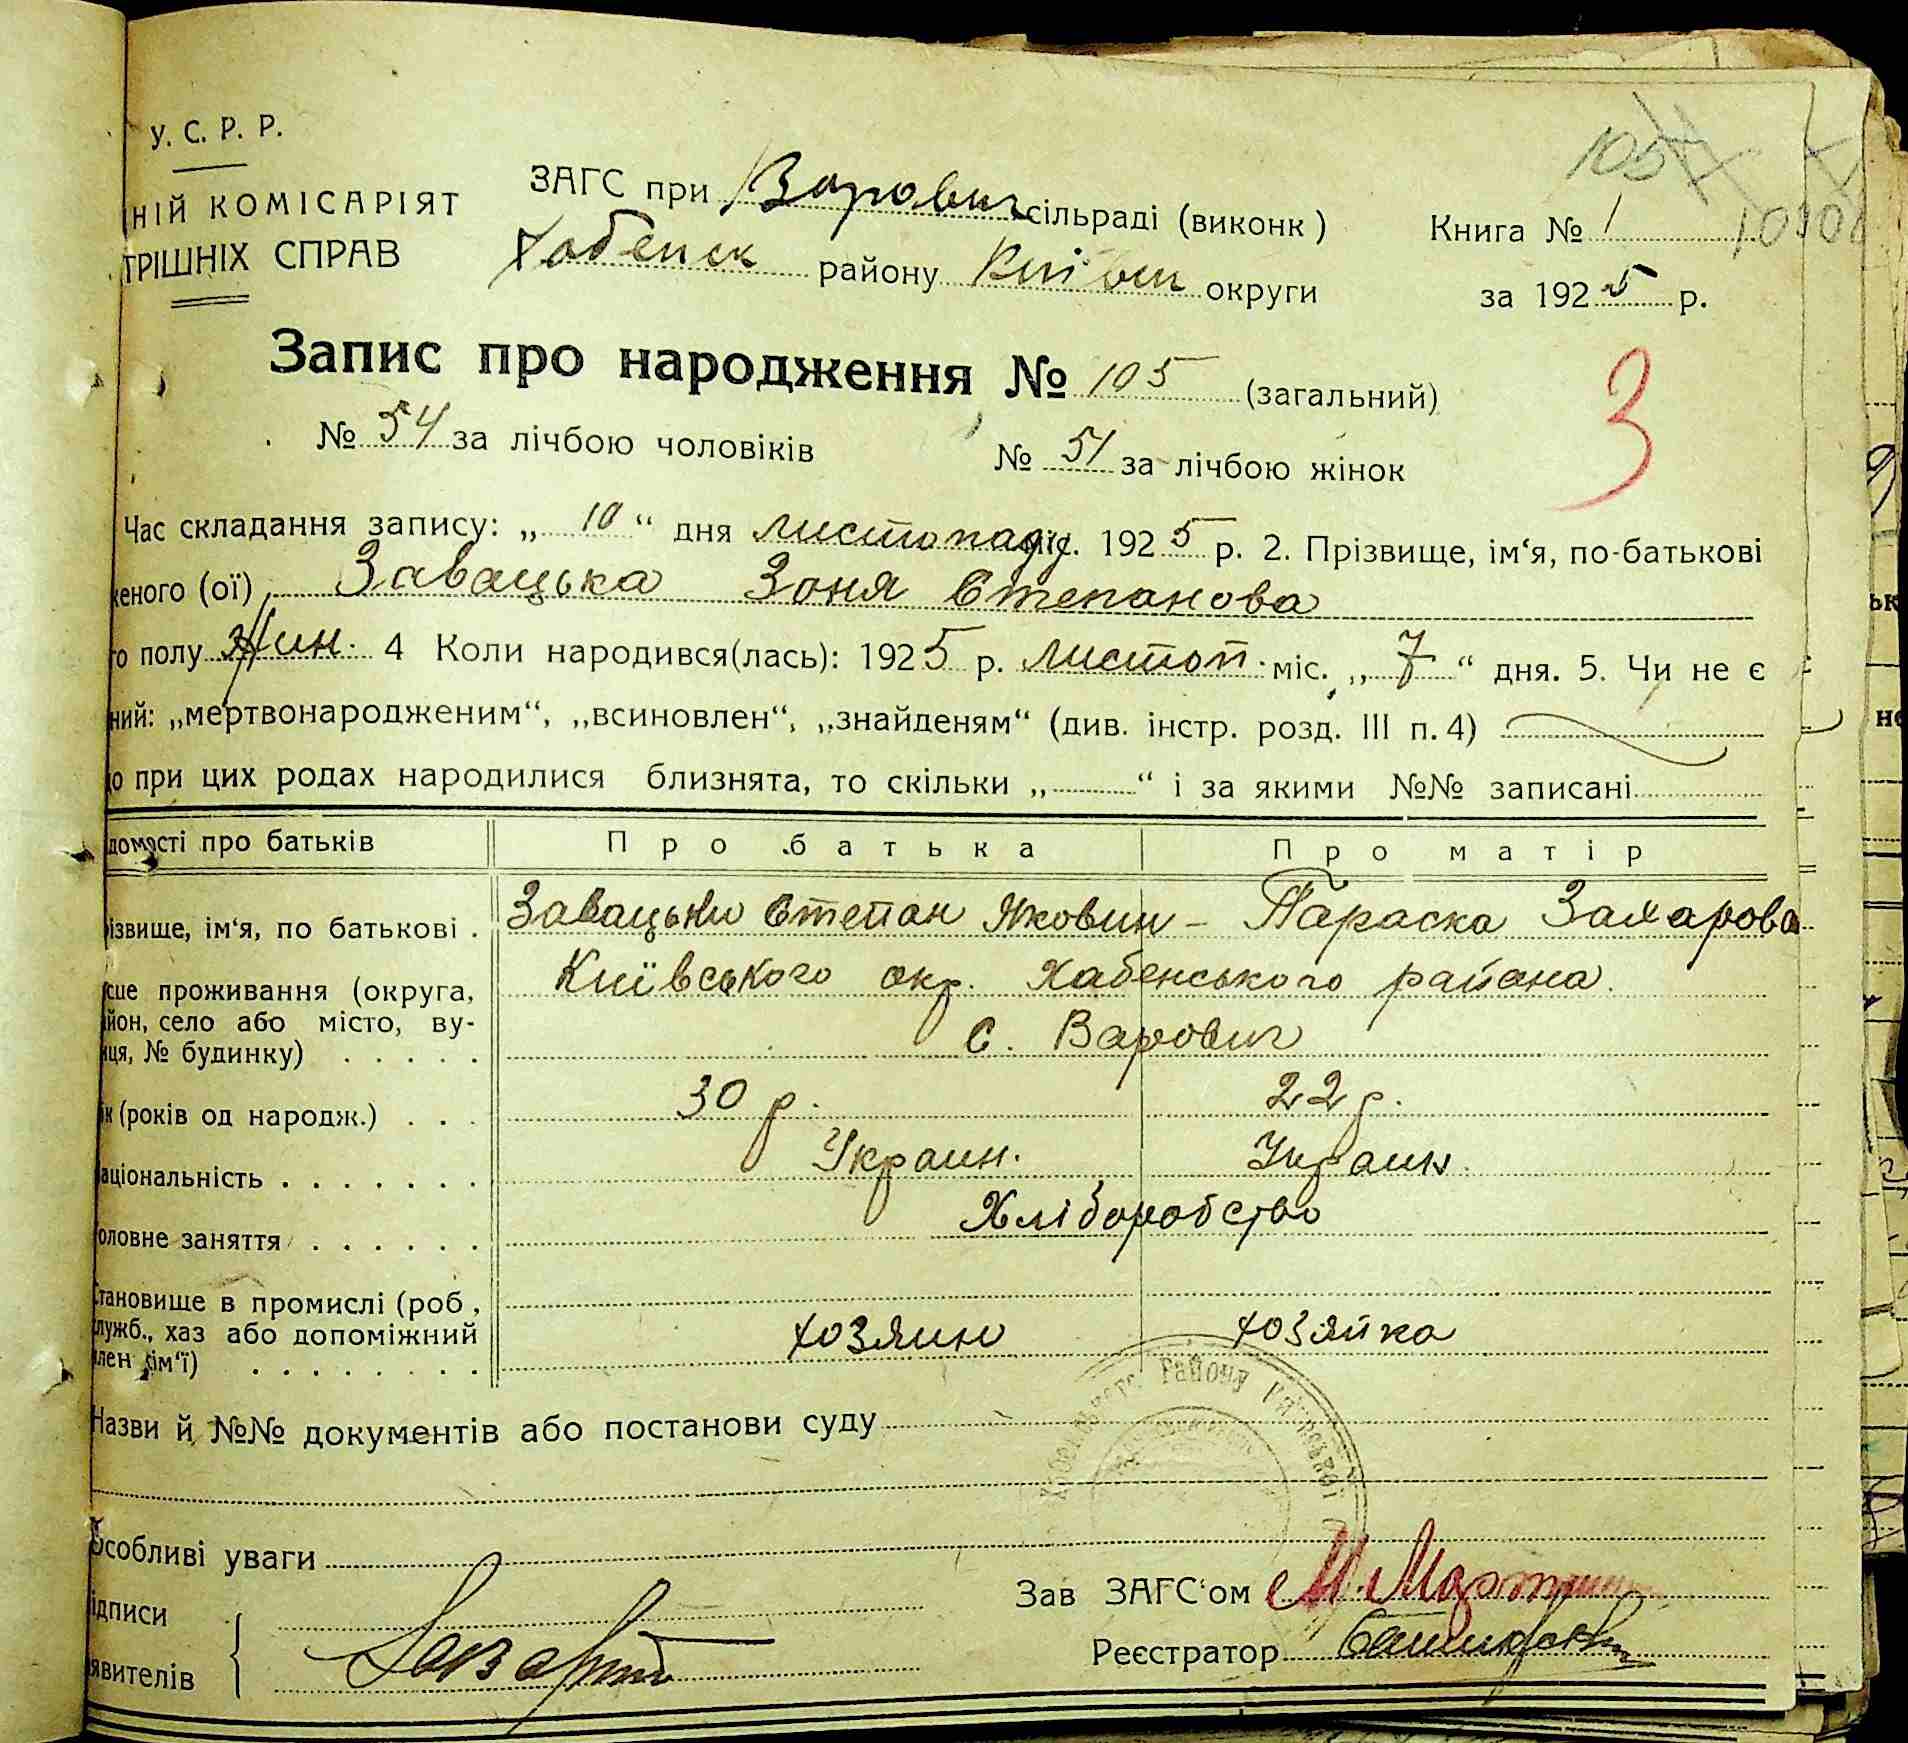 У. С. Р. Р.
НІЙ КОМІСАРІЯТ
ТРІШНІХ СПРАВ
ЗАГС при Варович сільраді (виконк)
Хабенск району Київськ округи
Книга № 1
за 1925 р.
105
Запис про народження № 105 (загальний)
3
№ 54 за лічбою чоловіків № 51 за лічбою жінок
Час складання запису: „ 10 “ дня листопаду 1925 р. 2. Прізвище, ім‘я, по-батькові
женого (ої) Завацька Зоня Степанова
го полу Жин. 4 Коли народився(лась): 1925 р. листоп. міс. „ 7 “ дня. 5. Чи не є
ний: „мертвонародженим“, „всиновлен“, „знайденям“ (див. інстр. розд. III п. 4)
що при цих родах народилися близнята, то скільки „ “ і за якими №№ записані
домості про батьків Про батька Про матір
різвище, ім‘я, по батькові . Завацьки Степан Якович - Параска Захарова
Київського окр. Хабенського района.
сце проживання (округа,
йон, село або місто, ву-
иця, № будинку) . . . . . с. Варович
ік (років од народж.) . . . 30 р. 22 р.
аціональність . . . . . . . Украин. Украин.
оловне заняття . . . . . . Хліборобство
Становище в промислі (роб,
служб., хаз або допоміжний
член сім‘ї) . . . . . . . . хозяин хозяйка
Району Київської
Назви й №№ документів або постанови суду
Особливі уваги
ідписи
явителів
Зав ЗАГС‘ом
Реєстратор